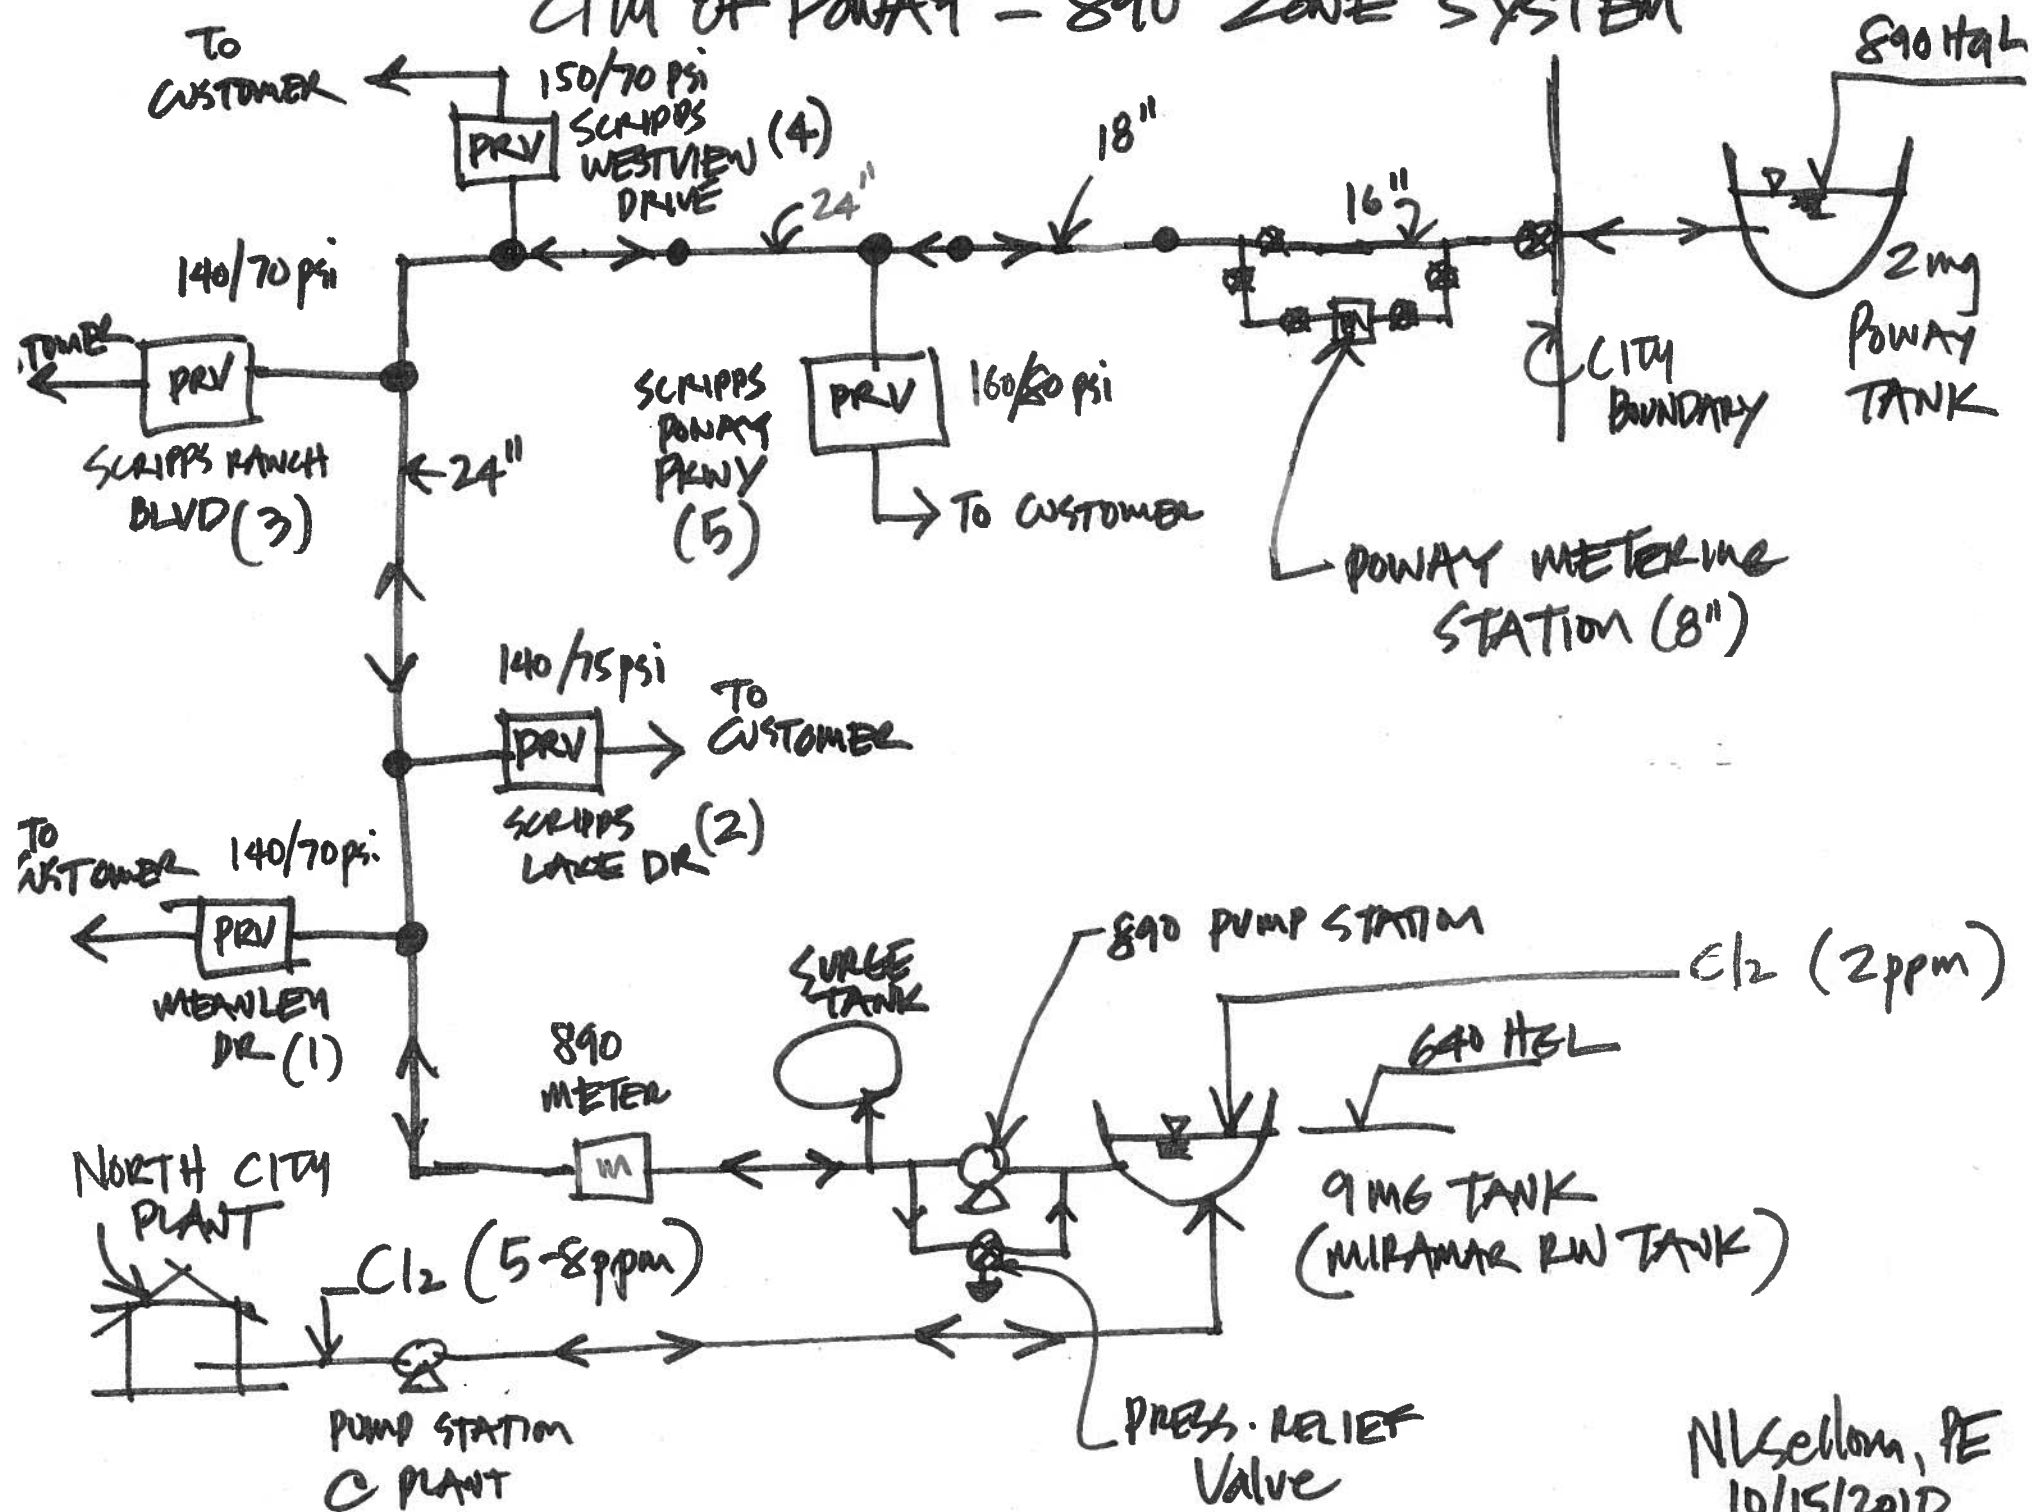 CITY OF POWAY - 890 ZONE SYSTEM
TO
CUSTOMER
150/70 psi
SCRIPPS
WESTVIEW
DRIVE
(4)
PRV
24"
18"
16"
890 HGL
2 mg
POWAY
TANK
CITY
BOUNDARY
140/70 psi
PRV
SCRIPPS RANCH
BLVD (3)
24"
SCRIPPS
POWAY
PKWY
(5)
PRV
TO CUSTOMER
M
POWAY METERING
STATION (8")
140/75 psi
PRV
TO
CUSTOMER
SCRIPPS
LAKE DR
(2)
TO
140/70 psi.
PRV
MEANLEY
DR (1)
SURGE
TANK
890 PUMP STATION
Cl2 (2ppm)
640 HGL
890
METER
m
9 MG TANK
(MIRAMAR RW TANK)
NORTH CITY
PLANT
Cl2 (5-8ppm)
PUMP STATION
@ PLANT
PRESS. RELIEF
Valve
PE